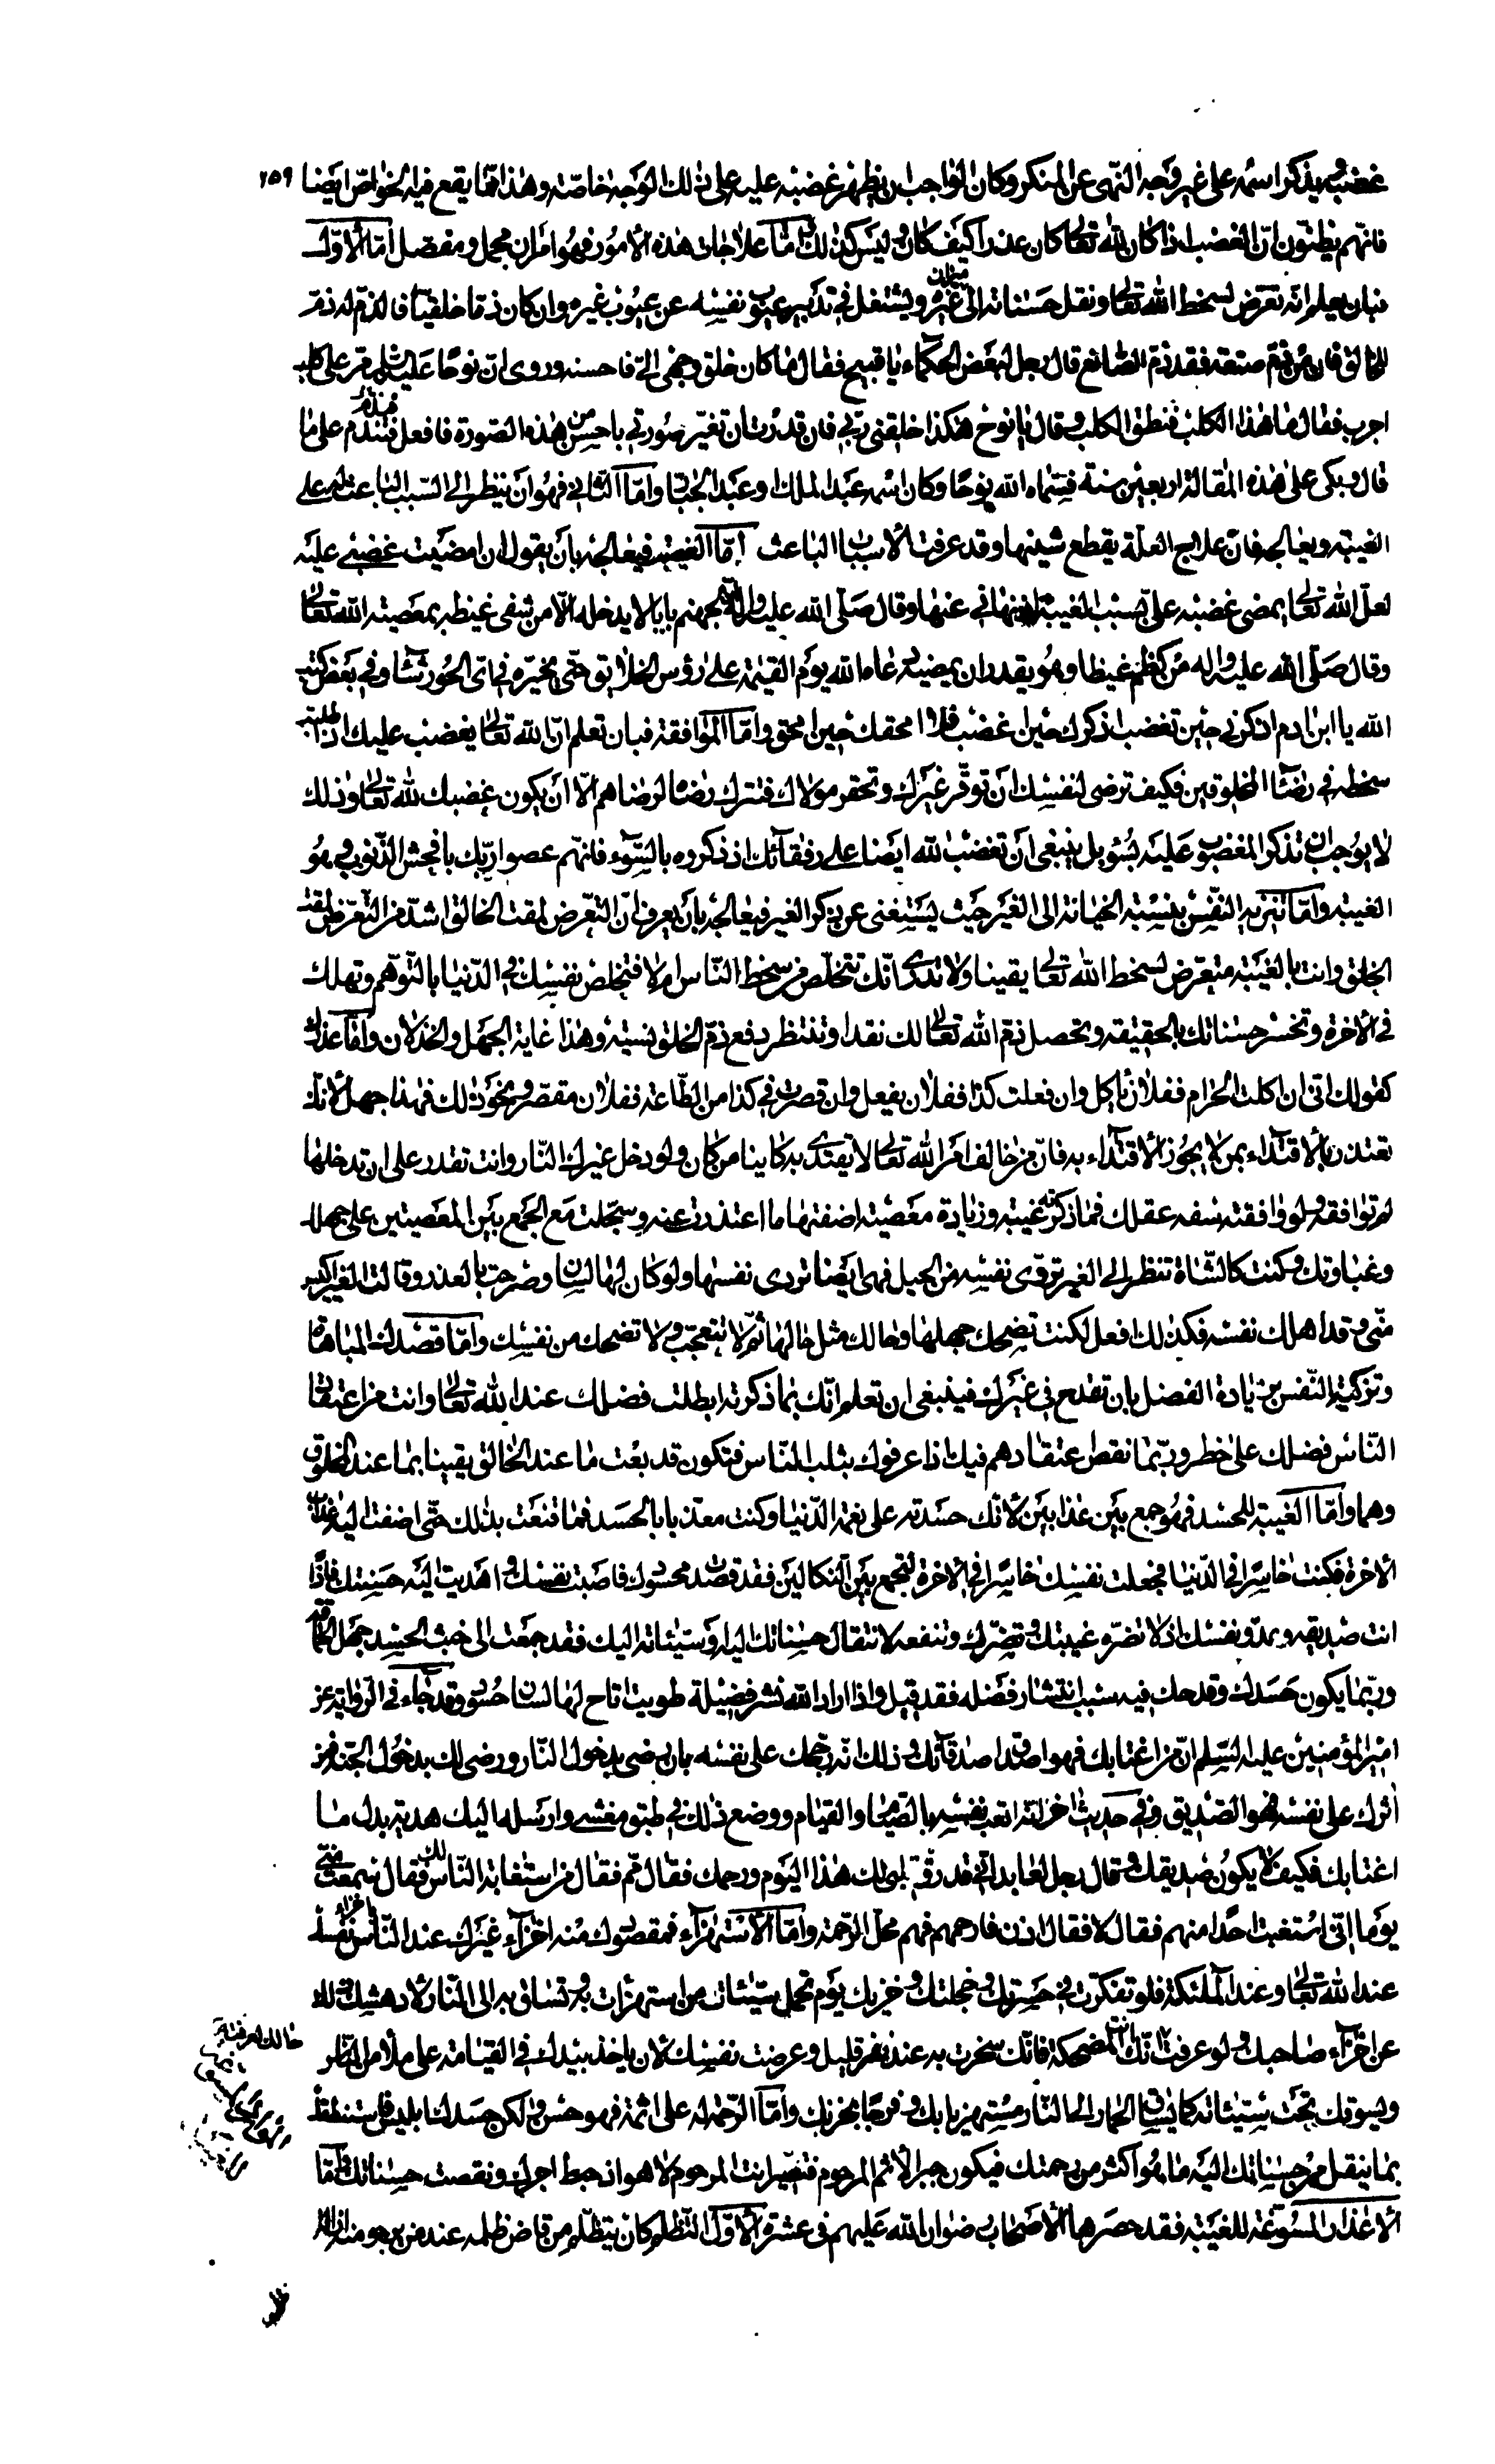 غضبه ويذكر اسمه على غير وجه النهى عن المنكر وكان الواجب ان يظهر غضبه عليه على ذلك الوجه خاصة وهذا مما يقع فيه الخواص ايضا ٢٥٩
فانهم يظنون ان الغضب اذا كان لله تعالى كان عذرا كيف كان وليس كذلك واما علاجات هذه الامور فهو امران مجمل ومفصل اما الاول
فبان يعلم انه تعرض لسخط الله تعالى ونقل حسناته الى ميزان غيره ويشتغل في تدبير عيوب نفسه عن عيوب غيره وان كان ذما خلقيا فالذم له ذم
للخالق فان من ذم صنعة فقد ذم الصانع قال رجل لبعض الحكماء يا قبيح فقال ما كان خلق وجهى الىّ فاحسنه وروى ان نوحا عليه السلم مر على كلب
اجرب فقال ما هذا الكلب فنطق الكلب وقال يا نوح هكذا خلقنى ربى فان قدرت ان تغير صورتى باحسن من هذه الصورة فافعل فتندم على ما
قال وبكى على هذه المقالة اربعين سنة فسماه الله نوحا وكان اسمه عبد الملك او عبد الجبار واما الثانى فهو ان ينظر الى السبب الباعث له على
الغيبة ويعالجه فان علاج العلة بقطع سببها وقد عرفت الاسباب الباعث اما الغضب فيعالجه بان يقول ان امضيت غضبى عليه
لعل الله تعالى يمضى غضبه علىّ بسبب الغيبة اذ نهانى عنها وقال صلى الله عليه واله ان لجهنم بابا لا يدخله الا من شفى غيظه بمعصية الله تعالى
وقال صلى الله عليه واله من كظم غيظا وهو يقدر ان يمضيه دعاه الله يوم القيمة على رؤس الخلائق حتى يخيره فى اى الحور شاء وفى بعض كتب
الله يا ابن ادم اذكرنى حين تغضب اذكرك حين اغضب فلا امحقك حين امحق واما الموافقة فبان تعلم ان الله تعالى يغضب عليك اذا طلبت
سخطه فى رضاء المخلوقين فكيف ترضى لنفسك ان توقر غيرك وتحقر مولاك فتترك رضاه لرضاهم الا ان يكون غضبك لله تعالى وذلك
لا يوجب ان تذكر المغضوب عليه بسوء بل ينبغى ان تغضب لله ايضا على رفقائك اذ ذكروه بالسوء فانهم عصوا ربك بافحش الذنوب وهو
الغيبة واما تنزيه النفس بنسبة الخيانة الى الغير حيث يستغنى عن ذكر الغير فيعالجه بان يعرف ان التعرض لمقت الخالق اشد من التعرض لمقت
الخلق وانت بالغيبة متعرض لسخط الله تعالى يقينا ولا تدرى انك تتخلص من سخط الناس ام لا فتخلص نفسك فى الدنيا بالتوهم وتهلك
فى الاخرة وتخسر حسناتك بالحقيقة وتحصل ذم الله تعالى لك نقدا وتنتظر دفع ذم الخلق نسية وهذا غاية الجهل والخذلان واما عذرك
كقولك انى ان اكلت الحرام ففلان ياكل وان فعلت كذا ففلان يفعل وان قصرت فى كذا من الطاعة ففلان مقصر ونحو ذلك فهذا جهل لانك
تعتذر بالاقتداء بمن لا يجوز الاقتداء به فان من خالف امر الله تعالى لا يقتدى به كائنا من كان ولو دخل غيرك النار وانت تقدر على ان تدخلها
لم توافقه ولو وافقته سفه عقلك فما ذكرته غيبة وزيادة معصية اضفتها ما اعتذرت عنه وسجلت مع الجمع بين المعصيتين على جهلك
وغباوتك وكنت كالشاة تنظر الى الغير تردى نفسه من الجبل فهى ايضا تردى نفسها ولو كان لها لسان وصرحت بالعذر وقالت الغير اكيس
منى وقد اهلك نفسه فكذلك افعل لكنت تضحك جهلها وحالك مثل حالها ثم لا تتعجب ولا تضحك من نفسك واما قصدك المباهاة
وتزكية النفس بزيادة الفضل بان تقدح فى غيرك فينبغى ان تعلم انك بما ذكرته ابطلت فضلك عند الله تعالى وانت من اعتقاد
الناس فضلك على خطر وربما نقص اعتقادهم فيك اذا عرفوك بثلب الناس فتكون قد بعت ما عند الخالق يقينا بما عند المخلوق
وهما واما الغيبة للحسد فهو جمع بين عذابين لانك حسدته على نعمة الدنيا وكنت معذبا بالحسد فما قنعت بذلك حتى اضفت اليه عذاب
الاخرة فكنت خاسرا فى الدنيا فجعلت نفسك خاسرا فى الاخرة لتجمع بين النكالين فقد قصدت محسودك فاصبت نفسك واهديت اليه حسنتك فاذا
انت صديقه وعدو نفسك اذ لا تضره غيبتك وتضرك وتنفعه لانتقال حسناتك اليه او سيئاته اليك فقد جمعت الى خبث الحسد جهل الحماقة
وربما يكون حسدك وقدحك فيه سبب انتشار فضله فقد قيل واذا اراد الله نشر فضيلة طويت اتاح لها لسان حسود وقد جاء فى الرواية عن
امير المؤمنين عليه السلم ان من اغتابك فهو اصدق اصدقائك وذلك انه رجحك على نفسه بان رضى بدخول النار ورضى لك بدخول الجنة فمن
اثرك على نفسه فهو الصديق وفى حديث اخر انه اتعب نفسه بالصيام والقيام ووضع ذلك فى طبق مغشى وارسله اليك هدية بدل ما
اغتابك فكيف لا يكون صديقك وقال رجل لعابد انى قد رق قلبى لك هذا اليوم ورحمك فقال مم فقال من استغابة الناس لك فقال سمعت منى
يوما انى استغبت احدا منهم فقال لا فقال اذن فارحمهم فهم محل الرحمة واما الاستهزاء فمقصودك منه اخزاء غيرك عند الناس باخزاء نفسك
عند الله تعالى وعند الملئكة فلو تفكرت فى حسرتك وخجلتك وخزيك يوم تحمل سيئات من استهزات به وتساق به الى النار لادهشك ذلك
عن اخزاء صاحبك ولو عرفت انك المضحكة فانك سخرت به عند نفر قليل وعرضت نفسك لان ياخذ بيدك فى القيامة على ملأ من الناس
ويسوقك تحت سيئاته كما يساق الحمار الى النار مستهزيا بك وفرحا بخزيك واما الرحمة له على اثمه فهو حسن ولكن حسدك ابليس فاستنطقك
بما ينقل من حسناتك اليه ما هو اكثر من رحمتك فيكون جبرا لاثم المرحوم فتصير انت المرحوم لا هو اذ حبط اجرك ونقصت حسناتك واما
الاعذار المسوغة للغيبة فقد حصرها الاصحاب رضوان الله عليهم فى عشرة الاول التظلم كان يتظلم من قاض ظلمه عند من يرجو منه ازالة